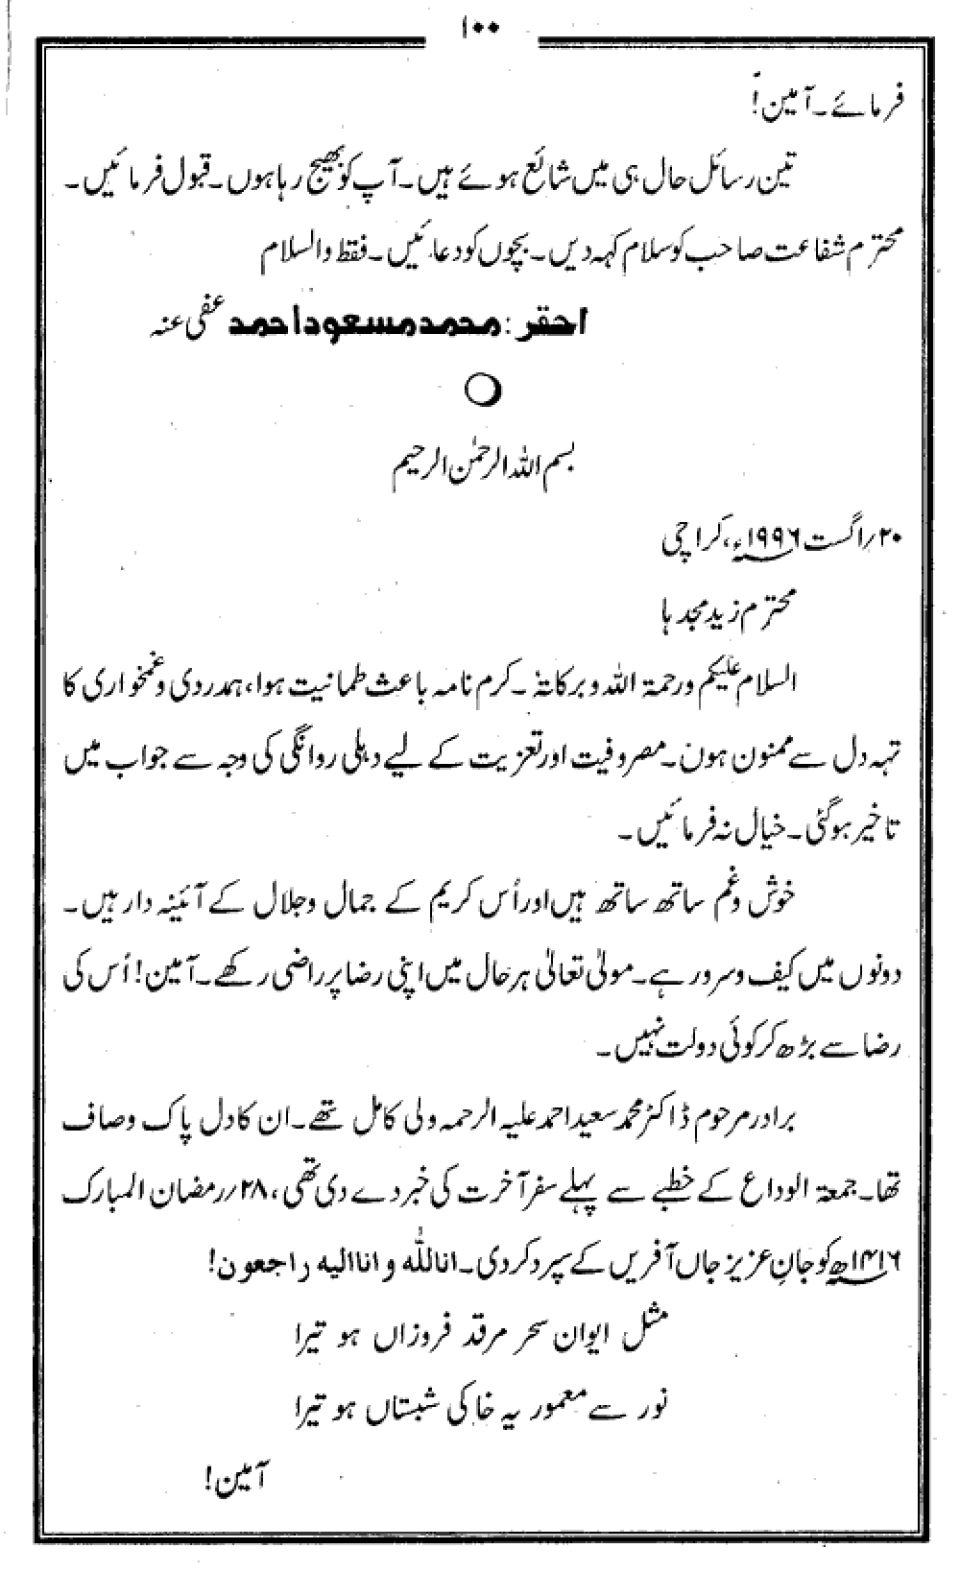 ۱۰۰
فرمائے۔ آمین!
تین رسائل حال ہی میں شائع ہوئے ہیں۔ آپ کو بھیج رہا ہوں۔ قبول فرمائیں۔
محترم شفاعت صاحب کو سلام کہہ دیں۔ بچوں کو دعائیں۔ فقط والسلام
احقر: محمد مسعود احمد عفی عنہ
بسم اللہ الرحمٰن الرحیم
۲۰؍اگست ۱۹۹۶ء، کراچی
محترم زید مجدہا
السلام علیکم ورحمۃ اللہ وبرکاتہٗ۔ کرم نامہ باعث طمانیت ہوا، ہمدردی و غمخواری کا
تہہ دل سے ممنون ہوں۔ مصروفیت اور تعزیت کے لیے دہلی روانگی کی وجہ سے جواب میں
تاخیر ہوگئی۔ خیال نہ فرمائیں۔
خوش وغم ساتھ ساتھ ہیں اور اُس کریم کے جمال وجلال کے آئینہ دار ہیں۔
دونوں میں کیف وسرور ہے۔ مولیٰ تعالیٰ ہر حال میں اپنی رضا پر راضی رکھے۔ آمین! اُس کی
رضا سے بڑھ کر کوئی دولت نہیں۔
برادر مرحوم ڈاکٹر محمد سعید احمد علیہ الرحمہ ولی کامل تھے۔ ان کا دل پاک وصاف
تھا۔ جمعۃ الوداع کے خطبے سے پہلے سفر آخرت کی خبر دے دی تھی، ۲۸؍رمضان المبارک
۱۴۱۶ھ کو جانِ عزیز جاں آفریں کے سپرد کردی۔ اناللّٰہ و اناالیہ راجعون!
مثل ایوان سحر مرقد فروزاں ہو تیرا
نور سے معمور یہ خاکی شبستاں ہو تیرا
آمین!